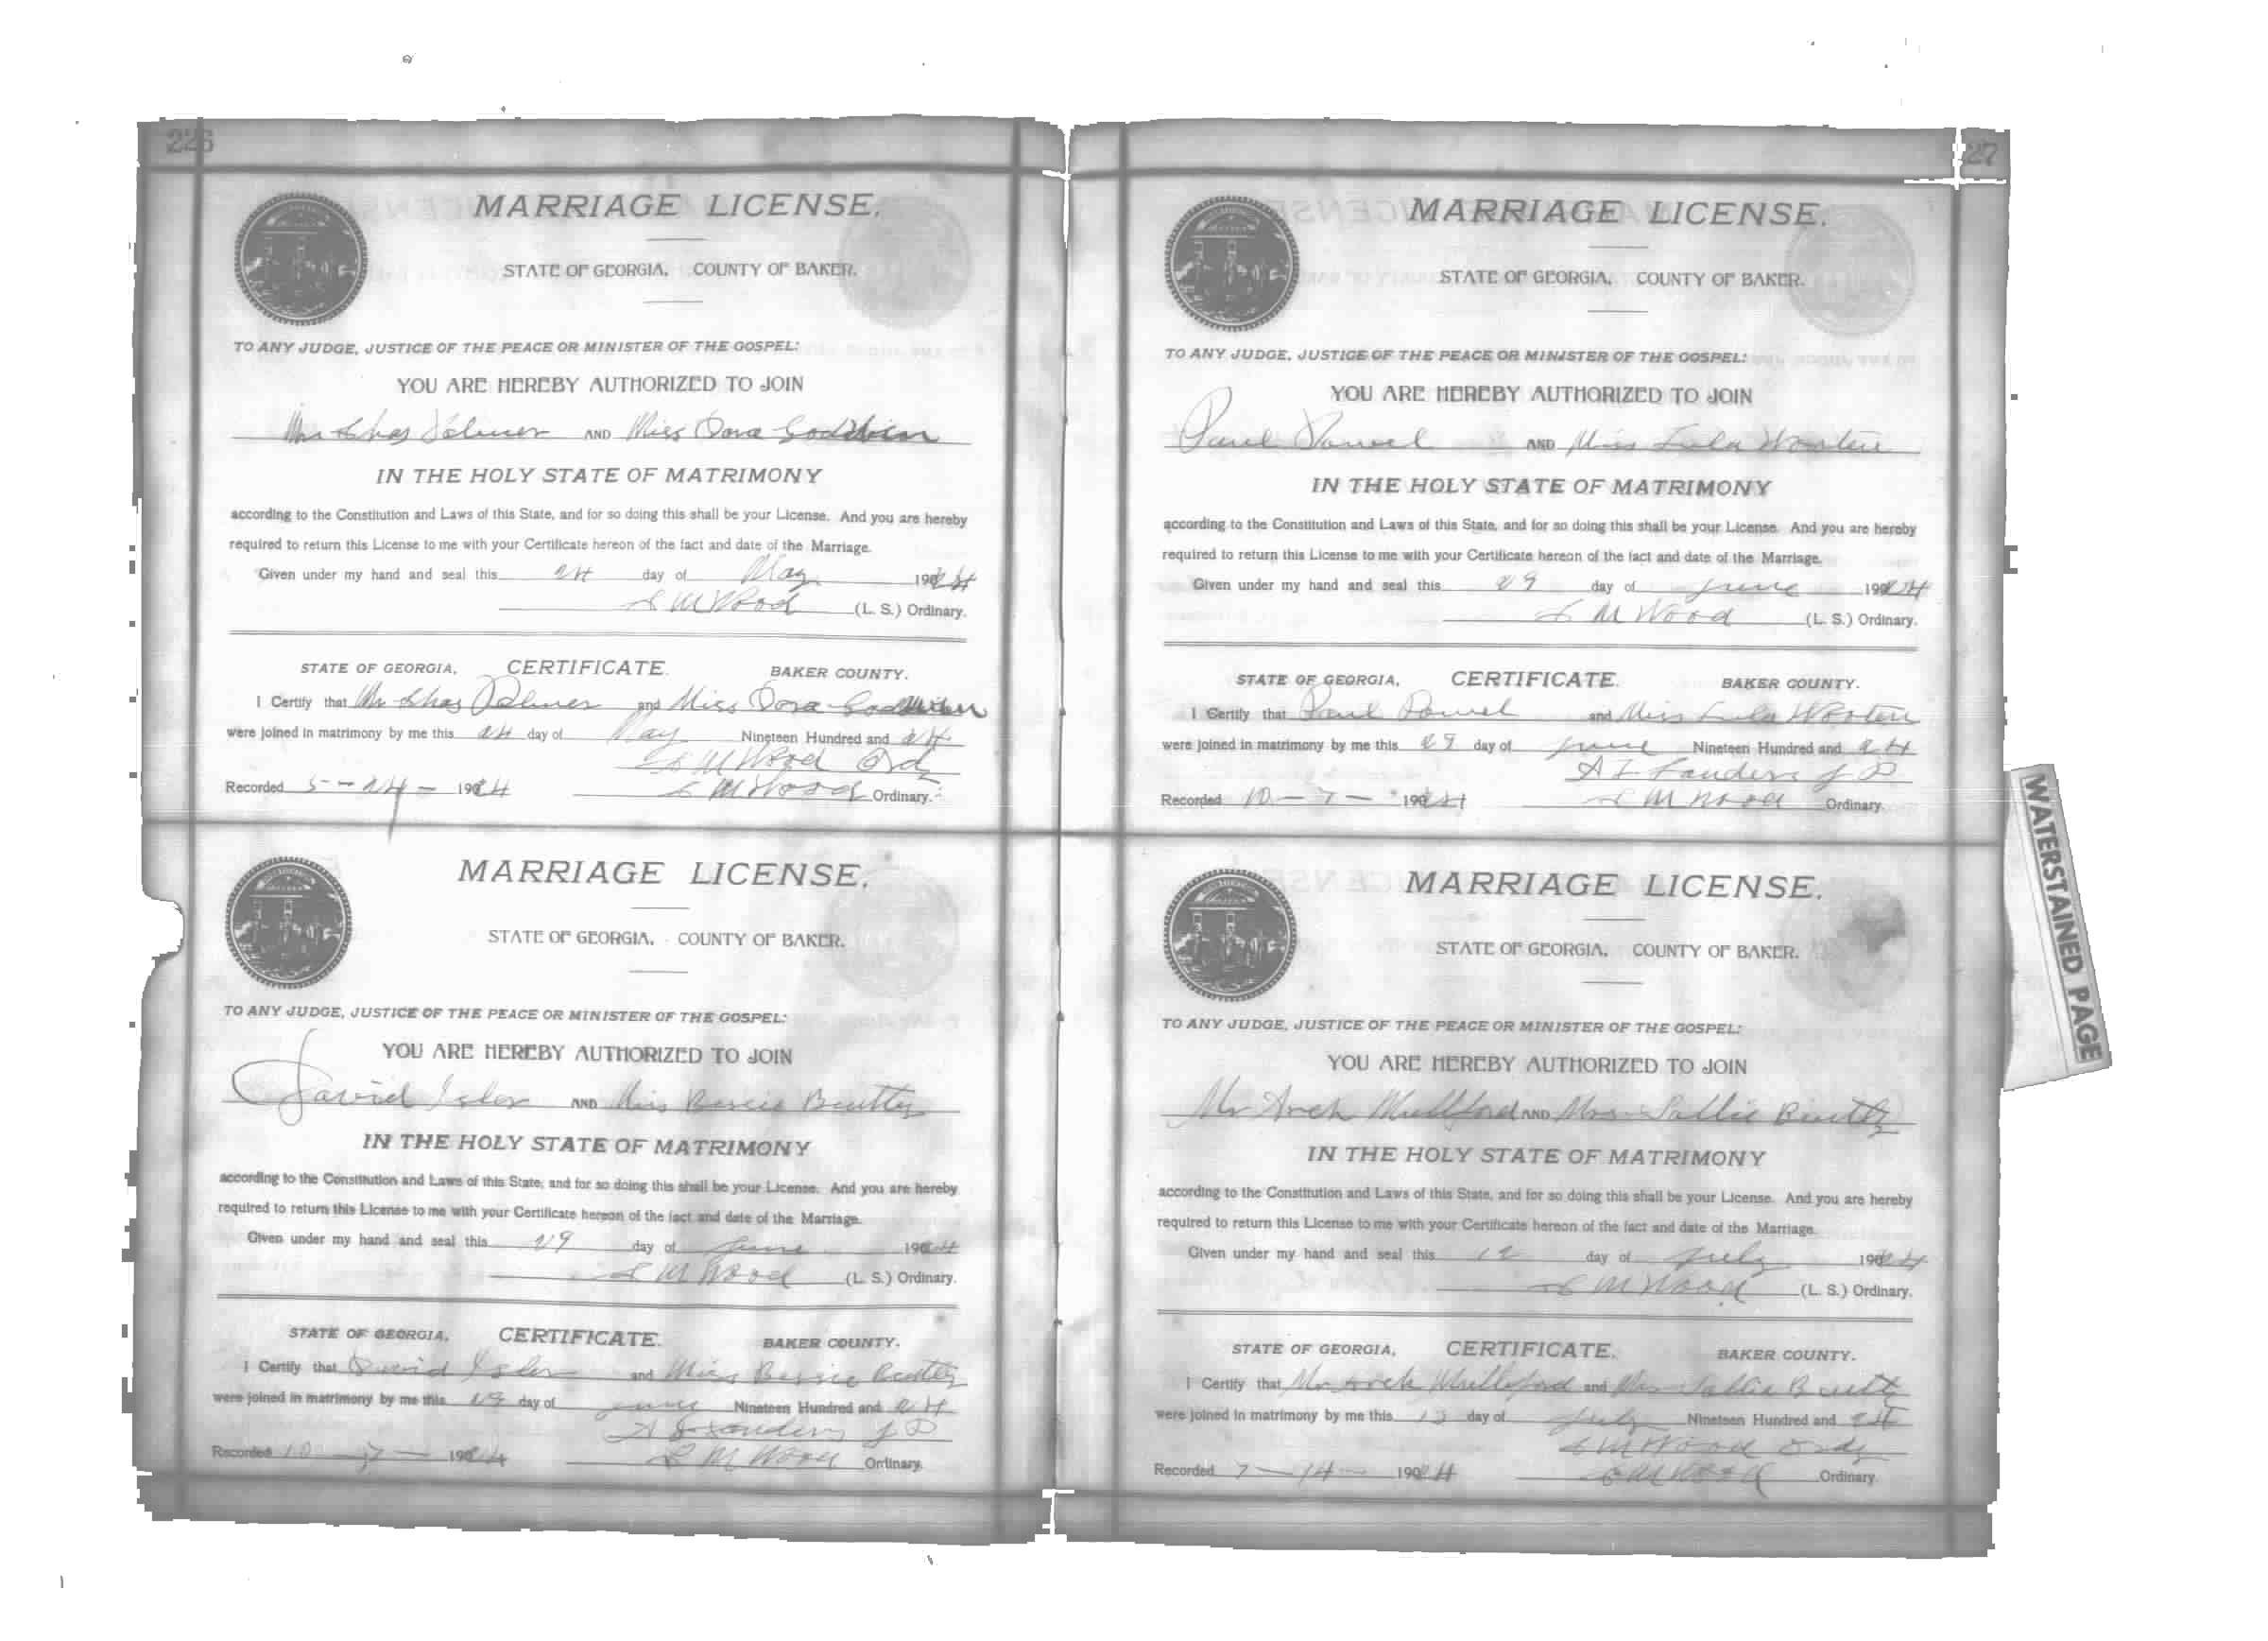 226
MARRIAGE LICENSE.
STATE OF GEORGIA, COUNTY OF BAKER.
TO ANY JUDGE, JUSTICE OF THE PEACE OR MINISTER OF THE GOSPEL:
YOU ARE HEREBY AUTHORIZED TO JOIN
Mr Chas AND Miss Dora
IN THE HOLY STATE OF MATRIMONY
according to the Constitution and Laws of this State, and for so doing this shall be your License. And you are hereby
required to return this License to me with your Certificate hereon of the fact and date of the Marriage.
Given under my hand and seal this 24 day of May 1924
L M Wood (L. S.) Ordinary.
STATE OF GEORGIA, CERTIFICATE. BAKER COUNTY.
I Certify that Mr Chas and Miss Dora
were joined in matrimony by me this 24 day of May Nineteen Hundred and 24
L M Wood Ordy
Recorded 5-24-1924 L M Wood Ordinary.
MARRIAGE LICENSE.
STATE OF GEORGIA, COUNTY OF BAKER.
TO ANY JUDGE, JUSTICE OF THE PEACE OR MINISTER OF THE GOSPEL:
YOU ARE HEREBY AUTHORIZED TO JOIN
David Isler AND Miss Bessie Beatty
IN THE HOLY STATE OF MATRIMONY
according to the Constitution and Laws of this State, and for so doing this shall be your License. And you are hereby
required to return this License to me with your Certificate hereon of the fact and date of the Marriage.
Given under my hand and seal this 29 day of June 1924
L M Wood (L. S.) Ordinary.
STATE OF GEORGIA, CERTIFICATE. BAKER COUNTY.
I Certify that David Isler and Miss Bessie Beatty
were joined in matrimony by me this 29 day of June Nineteen Hundred and 24
Sanders J P
Recorded 10-7-1924 L M Wood Ordinary.
27
MARRIAGE LICENSE.
STATE OF GEORGIA, COUNTY OF BAKER.
TO ANY JUDGE, JUSTICE OF THE PEACE OR MINISTER OF THE GOSPEL:
YOU ARE HEREBY AUTHORIZED TO JOIN
Paul Powel AND Miss Lula Wooten
IN THE HOLY STATE OF MATRIMONY
according to the Constitution and Laws of this State, and for so doing this shall be your License. And you are hereby
required to return this License to me with your Certificate hereon of the fact and date of the Marriage.
Given under my hand and seal this 29 day of June 1924
L M Wood (L. S.) Ordinary.
STATE OF GEORGIA, CERTIFICATE. BAKER COUNTY.
I Certify that Paul Powel and Miss Lula Wooten
were joined in matrimony by me this 29 day of June Nineteen Hundred and 24
Sanders J P
Recorded 10-7-1924 L M Wood Ordinary.
MARRIAGE LICENSE.
STATE OF GEORGIA, COUNTY OF BAKER.
TO ANY JUDGE, JUSTICE OF THE PEACE OR MINISTER OF THE GOSPEL:
YOU ARE HEREBY AUTHORIZED TO JOIN
Mr Arch Mullford AND Mrs Sallie Beatty
IN THE HOLY STATE OF MATRIMONY
according to the Constitution and Laws of this State, and for so doing this shall be your License. And you are hereby
required to return this License to me with your Certificate hereon of the fact and date of the Marriage.
Given under my hand and seal this 12 day of July 1924
L M Wood (L. S.) Ordinary.
STATE OF GEORGIA, CERTIFICATE. BAKER COUNTY.
I Certify that Mr Arch and Mrs Sallie Beatty
were joined in matrimony by me this 13 day of July Nineteen Hundred and 24
L M Wood Ordy
Recorded 7-14-1924 L M Wood Ordinary.
WATERSTAINED PAGE